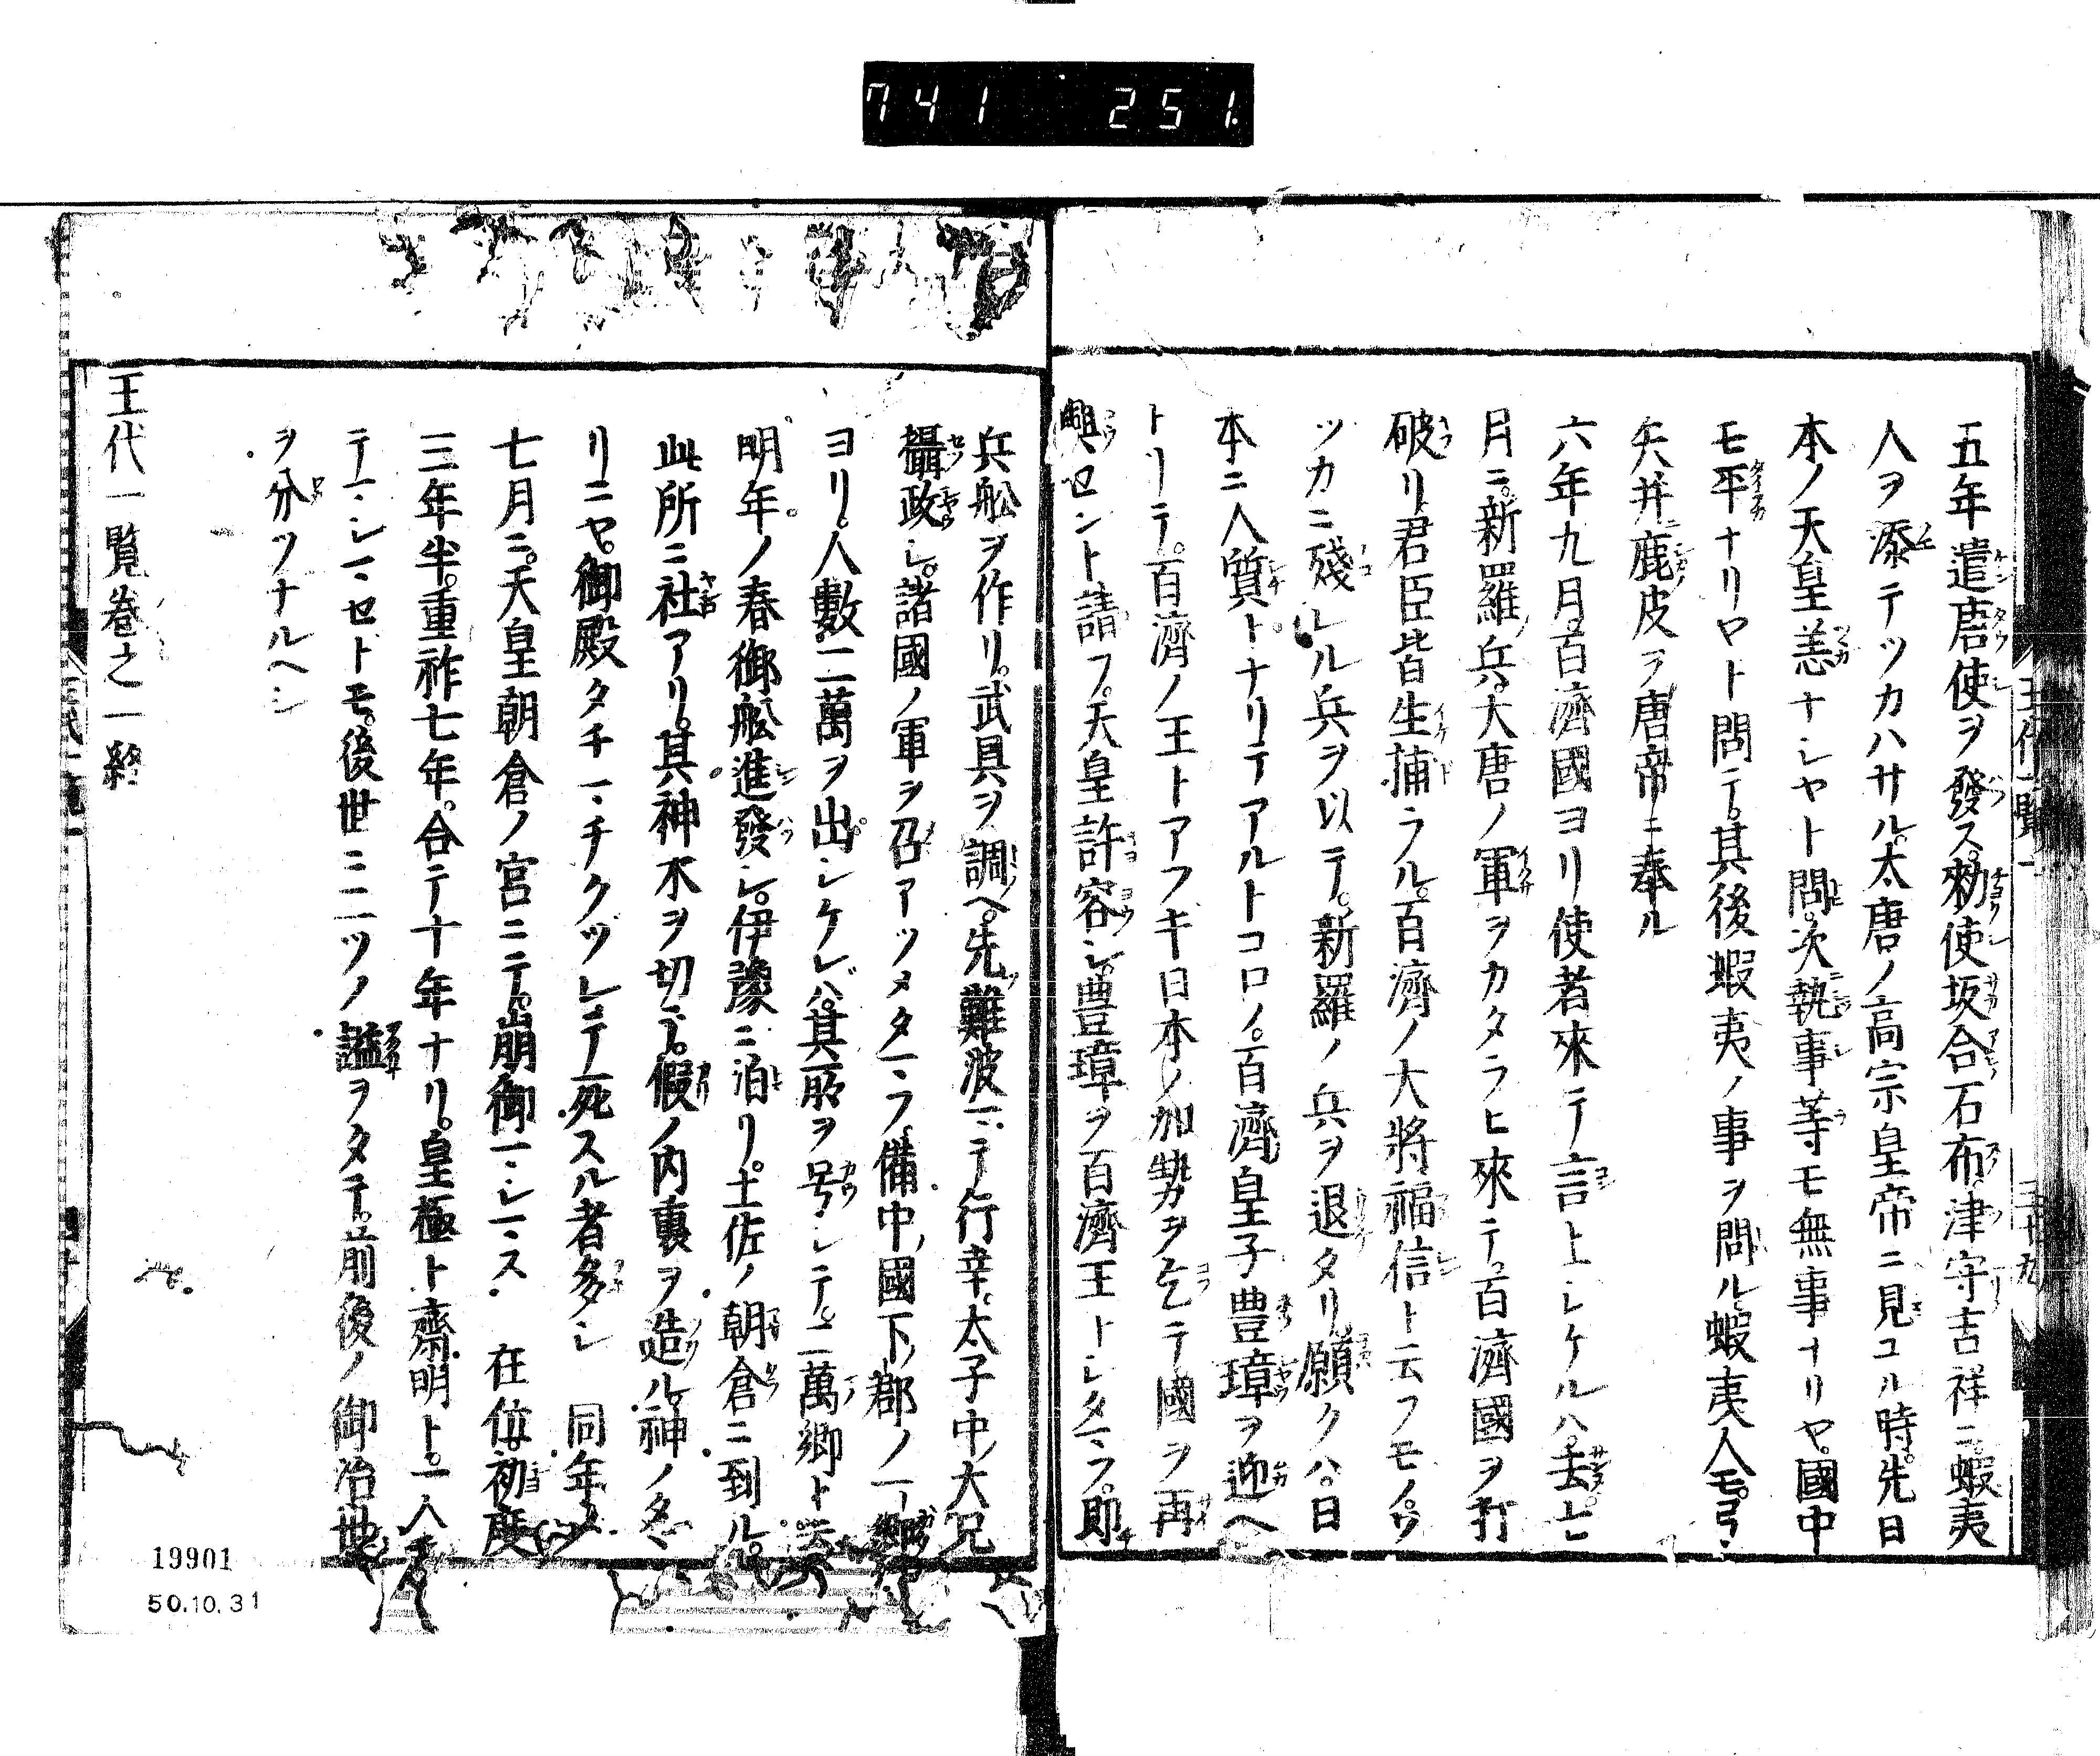 741 251.
五年遣唐使ヲ發ス。勅使坂合石布。津守吉祥ニ。蝦夷
人ヲ添テツカハサル。大唐ノ高宗皇帝ニ見ユル時。先日
本ノ天皇恙ナシヤト問。次執事等モ無事ナリヤ。國中
モ平ナリヤト問テ。其後蝦夷ノ事ヲ問ル。蝦夷人モ。弓
矢并鹿皮ヲ唐帝ニ奉ル
六年九月百濟國ヨリ使者來テ言上シケルハ。去ヒ
月ニ。新羅ノ兵。大唐ノ軍ヲカタラヒ來テ。百濟國ヲ打
破リ。君臣皆生捕ラル。百濟ノ大將福信ト云フモノ。ワ
ツカニ殘レル兵ヲ以テ。新羅ノ兵ヲ退タリ。願クハ。日
本ニ人質トナリテアルトコロノ。百濟皇子豊璋ヲ迎ヘ
トリテ。百濟ノ王トアフキ日本ノ加勢ヲ乞テ國ヲ再
興セント請フ。天皇許容シ豊璋ヲ百濟王トシタマフ。即
兵舩ヲ作リ。武具ヲ調ヘ。先難波マテ行幸。太子中大兄
攝政シ。諸國ノ軍ヲ召アツメタマフ。備中ノ國下ノ郡ノ一郷
ヨリ。人數二萬ヲ出シケレバ。其所ヲ号シテ。二萬郷ト云
明年ノ春御舩進發シ。伊豫ニ泊リ。土佐ノ朝倉ニ到ル。
此所ニ社アリ。其神木ヲ切テ。假ノ内裏ヲ造ル。神ノタヽ
リニヤ。御殿タチマチクヅレテ死スル者多シ 同年
七月ニ。天皇朝倉ノ宮ニテ。崩御マシマス 在位。初度
三年半。重祚七年。合テ十年ナリ。皇極ト齋明ト。一人
テマシマセトモ。後世ニ二ツノ謚ヲタテ。前後ノ御治世
ヲ分ツナルヘシ
王代一覧巻之一終
19901
50.10.31